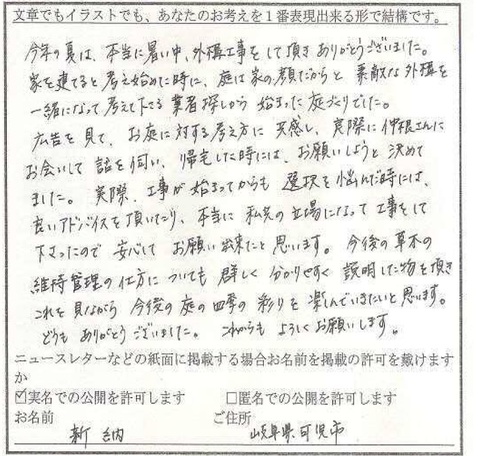 文章でもイラストでも、あなたのお考えを1番表現出来る形で結構です。
今年の夏は、本当に暑い中、外構工事をして頂きありがとうございました。
家を建てると考え始めた時に、庭は家の顔だからと素敵な外構を
一緒になって考えて下さる業者探しから始まった庭づくりでした。
広告を見て、お庭に対する考え方に共感し、実際に仲根さんに
お会いして話を伺い、帰宅した時には、お願いしようと決めて
ました。実際、工事が始まってからも選択を悩んだ時には、
良いアドバイスを頂いたり、本当に私共の立場になって工事をして
下さったので安心してお願い出来たと思います。今後の草木の
維持管理の仕方についても詳しく分かりやすく説明した物を頂き
これを見ながら今後の庭の四季の彩りを楽しんでいきたいと思います。
どうもありがとうございました。これからもよろしくお願いします。
ニュースレターなどの紙面に掲載する場合お名前を掲載の許可を戴けます
か
☑実名での公開を許可します □匿名での公開を許可します
お名前 ご住所
新納 岐阜県可児市